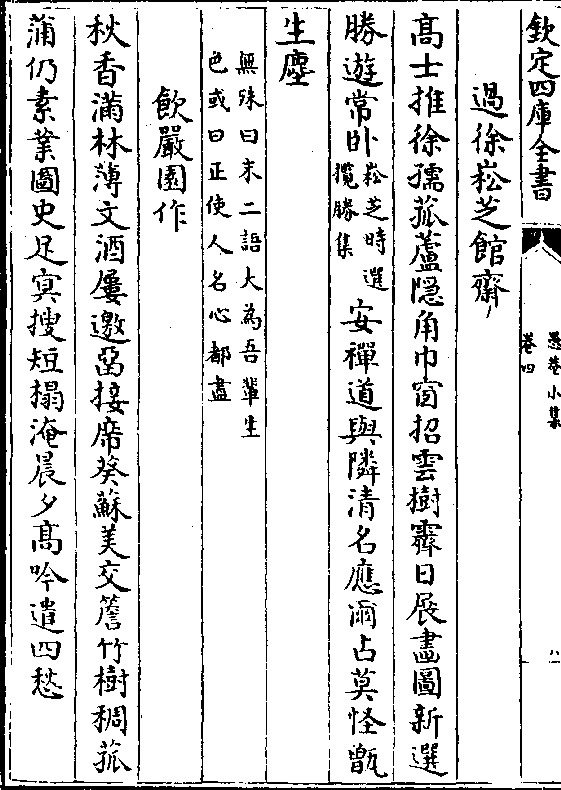 欽定四庫全書
愚菴小集
卷四
過徐崧芝館齋
高士推徐孺菰蘆隠角巾窗招雲樹霽日展畫圖新選
勝遊常卧
崧芝時選
攬勝集
安禪道與隣清名應爾占莫怪甑
生塵
無殊曰末二語大為吾輩生
色或曰正使人名心都盡
飲嚴園作
秋香滿林薄文酒屢邀咼接席葵蘇美交簷竹樹稠菰
蒲仍素業圖史足冥搜短榻淹晨夕髙吟遣四愁